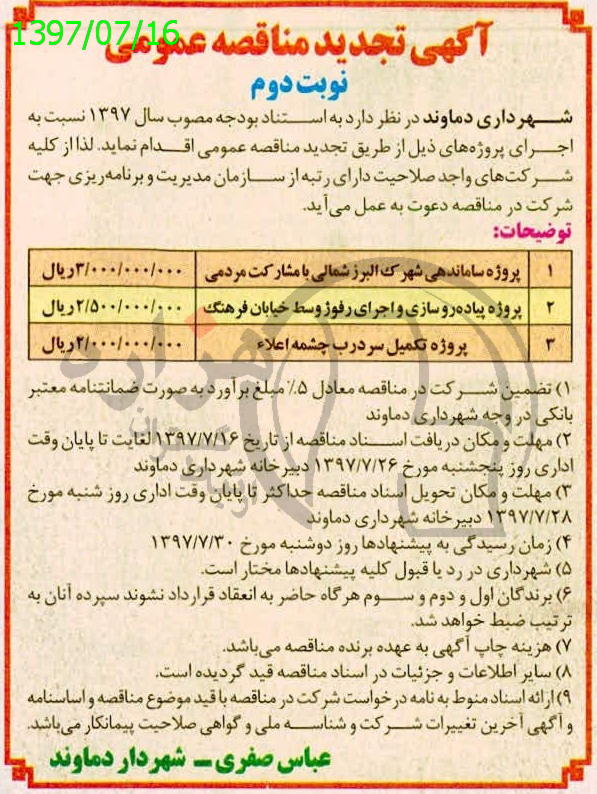 1397/07/16
آگهی تجدید مناقصه عمومی
نوبت دوم
شهرداری دماوند در نظر دارد به استناد بودجه مصوب سال ۱۳۹۷ نسبت به
اجرای پروژه‌های ذیل از طریق تجدید مناقصه عمومی اقدام نماید. لذا از کلیه
شرکت‌های واجد صلاحیت دارای رتبه از سازمان مدیریت و برنامه‌ریزی جهت
شرکت در مناقصه دعوت به عمل می‌آید.
توضیحات:
۱ پروژه ساماندهی شهرک البرز شمالی با مشارکت مردمی ۳/۰۰۰/۰۰۰/۰۰۰ ریال
۲ پروژه پیاده‌روسازی و اجرای رفوژ وسط خیابان فرهنگ ۲/۵۰۰/۰۰۰/۰۰۰ ریال
۳ پروژه تکمیل سردرب چشمه اعلاء ۲/۰۰۰/۰۰۰/۰۰۰ ریال
۱) تضمین شرکت در مناقصه معادل ۵٪ مبلغ برآورد به صورت ضمانتنامه معتبر
بانکی در وجه شهرداری دماوند
۲) مهلت و مکان دریافت اسناد مناقصه از تاریخ ۱۳۹۷/۷/۱۶ لغایت تا پایان وقت
اداری روز پنجشنبه مورخ ۱۳۹۷/۷/۲۶ دبیرخانه شهرداری دماوند
۳) مهلت و مکان تحویل اسناد مناقصه حداکثر تا پایان وقت اداری روز شنبه مورخ
۱۳۹۷/۷/۲۸ دبیرخانه شهرداری دماوند
۴) زمان رسیدگی به پیشنهادها روز دوشنبه مورخ ۱۳۹۷/۷/۳۰
۵) شهرداری در رد یا قبول کلیه پیشنهادها مختار است.
۶) برندگان اول و دوم و سوم هرگاه حاضر به انعقاد قرارداد نشوند سپرده آنان به
ترتیب ضبط خواهد شد.
۷) هزینه چاپ آگهی به عهده برنده مناقصه می‌باشد.
۸) سایر اطلاعات و جزئیات در اسناد مناقصه قید گردیده است.
۹) ارائه اسناد منوط به نامه درخواست شرکت در مناقصه با قید موضوع مناقصه و اساسنامه
و آگهی آخرین تغییرات شرکت و شناسه ملی و گواهی صلاحیت پیمانکار می‌باشد.
عباس صفری ــ شهردار دماوند
هزاره